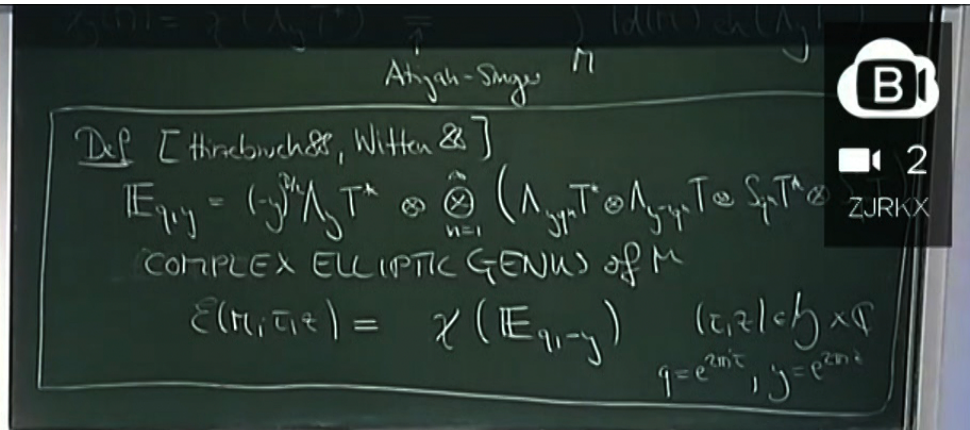 Atiyah-Singer M
Def [Hirzebruch 88, Witten 88]
𝔼_{q,y} = (-y)^{D/2} Λ_y T* ⊗ ⊗_{n=1}^∞ (Λ_{yqⁿ} T* ⊗ Λ_{y⁻¹qⁿ} T ⊗ S_{qⁿ} T* ⊗
COMPLEX ELLIPTIC GENUS of M
ℰ(M; τ, z) = χ(𝔼_{q,-y}) (τ, z) ∈ 𝔥 × ℂ
q = e^{2πiτ}, y = e^{2πiz}
B
2
ZJRKX